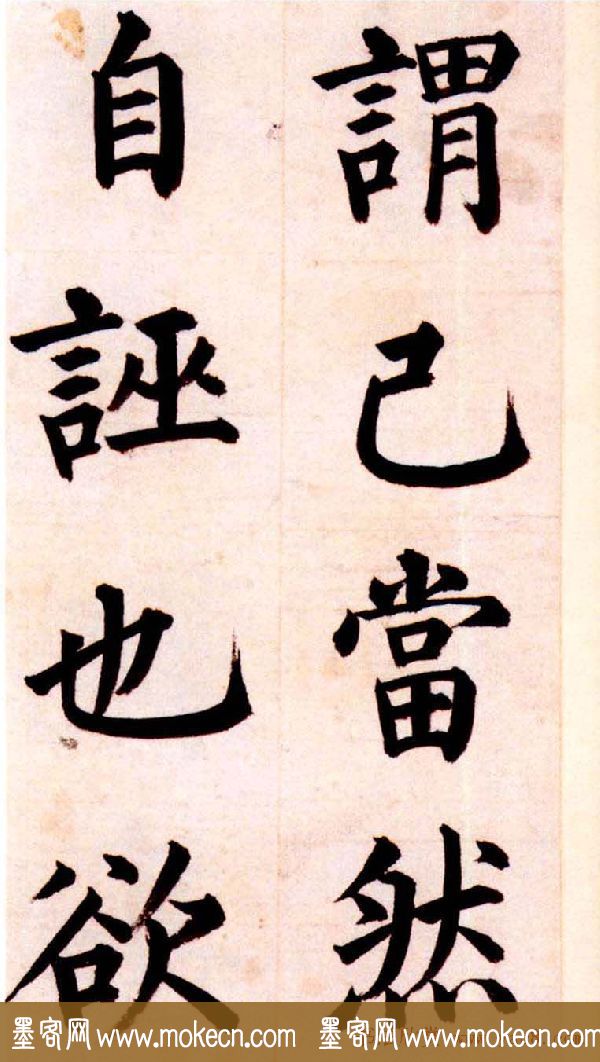 謂己當然
自誣也欲
墨客网www.mokecn.com 墨客网www.mokecn.com